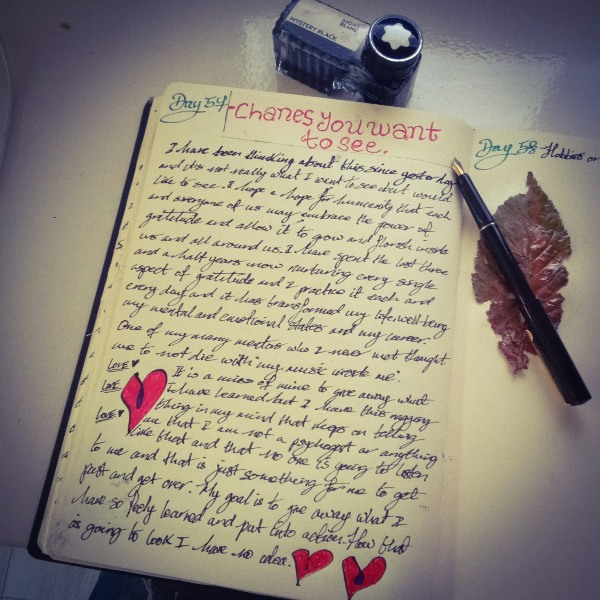 MONT
BLANC
MYSTERY BLACK
Day 57
-Chanes You want
to see.
I have been thinking about this since yesterday
and its not really what I want to see but would
like to see. I hope a hope for humanity that each
and everyone of us may embrace the power of
gratitude and allow it to grow and florish inside
us and all around us. I have spent the last three
and a half years now nurturing every single
aspect of gratitude and I practice it each and
every day and it has transformed my life, well being
my mental and emotional states and my career.
One of my many mentors who I never met thought
me to not die with "my music inside me".
LOVE
LOVE
LOVE
It is a miss of mine to give away what
I have learned but I have this nagging
thing in my mind that keeps on telling
me that I am not a psychopat or anything
like that and that no one is going to listen
to me and that is just something for me to get
past and get over. My goal is to give away what I
have so freely learned and put into action. How that
is going to look I have no idea.
Day 58 - Hobbies or